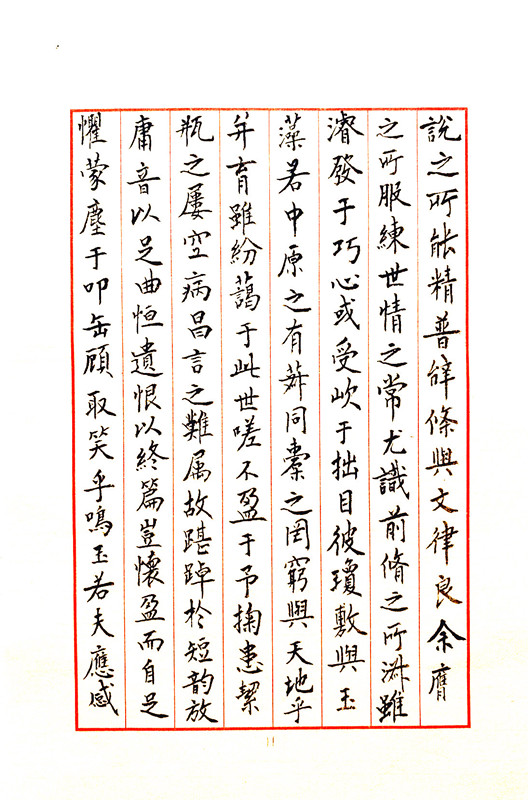 說之所能精普辞條與文律良余膺
之所服練世情之常尤識前脩之所淑雖
濬發于巧心或受欰于拙目彼瓊敷與玉
藻若中原之有菽同橐之罔窮與天地乎
并育雖紛藹于此世嗟不盈于予掬患挈
瓶之屢空病昌言之難属故踸踔於短韵放
庸音以足曲恒遺恨以終篇豈懷盈而自足
懼蒙塵于叩缶顧取笑乎鳴玉若夫應感